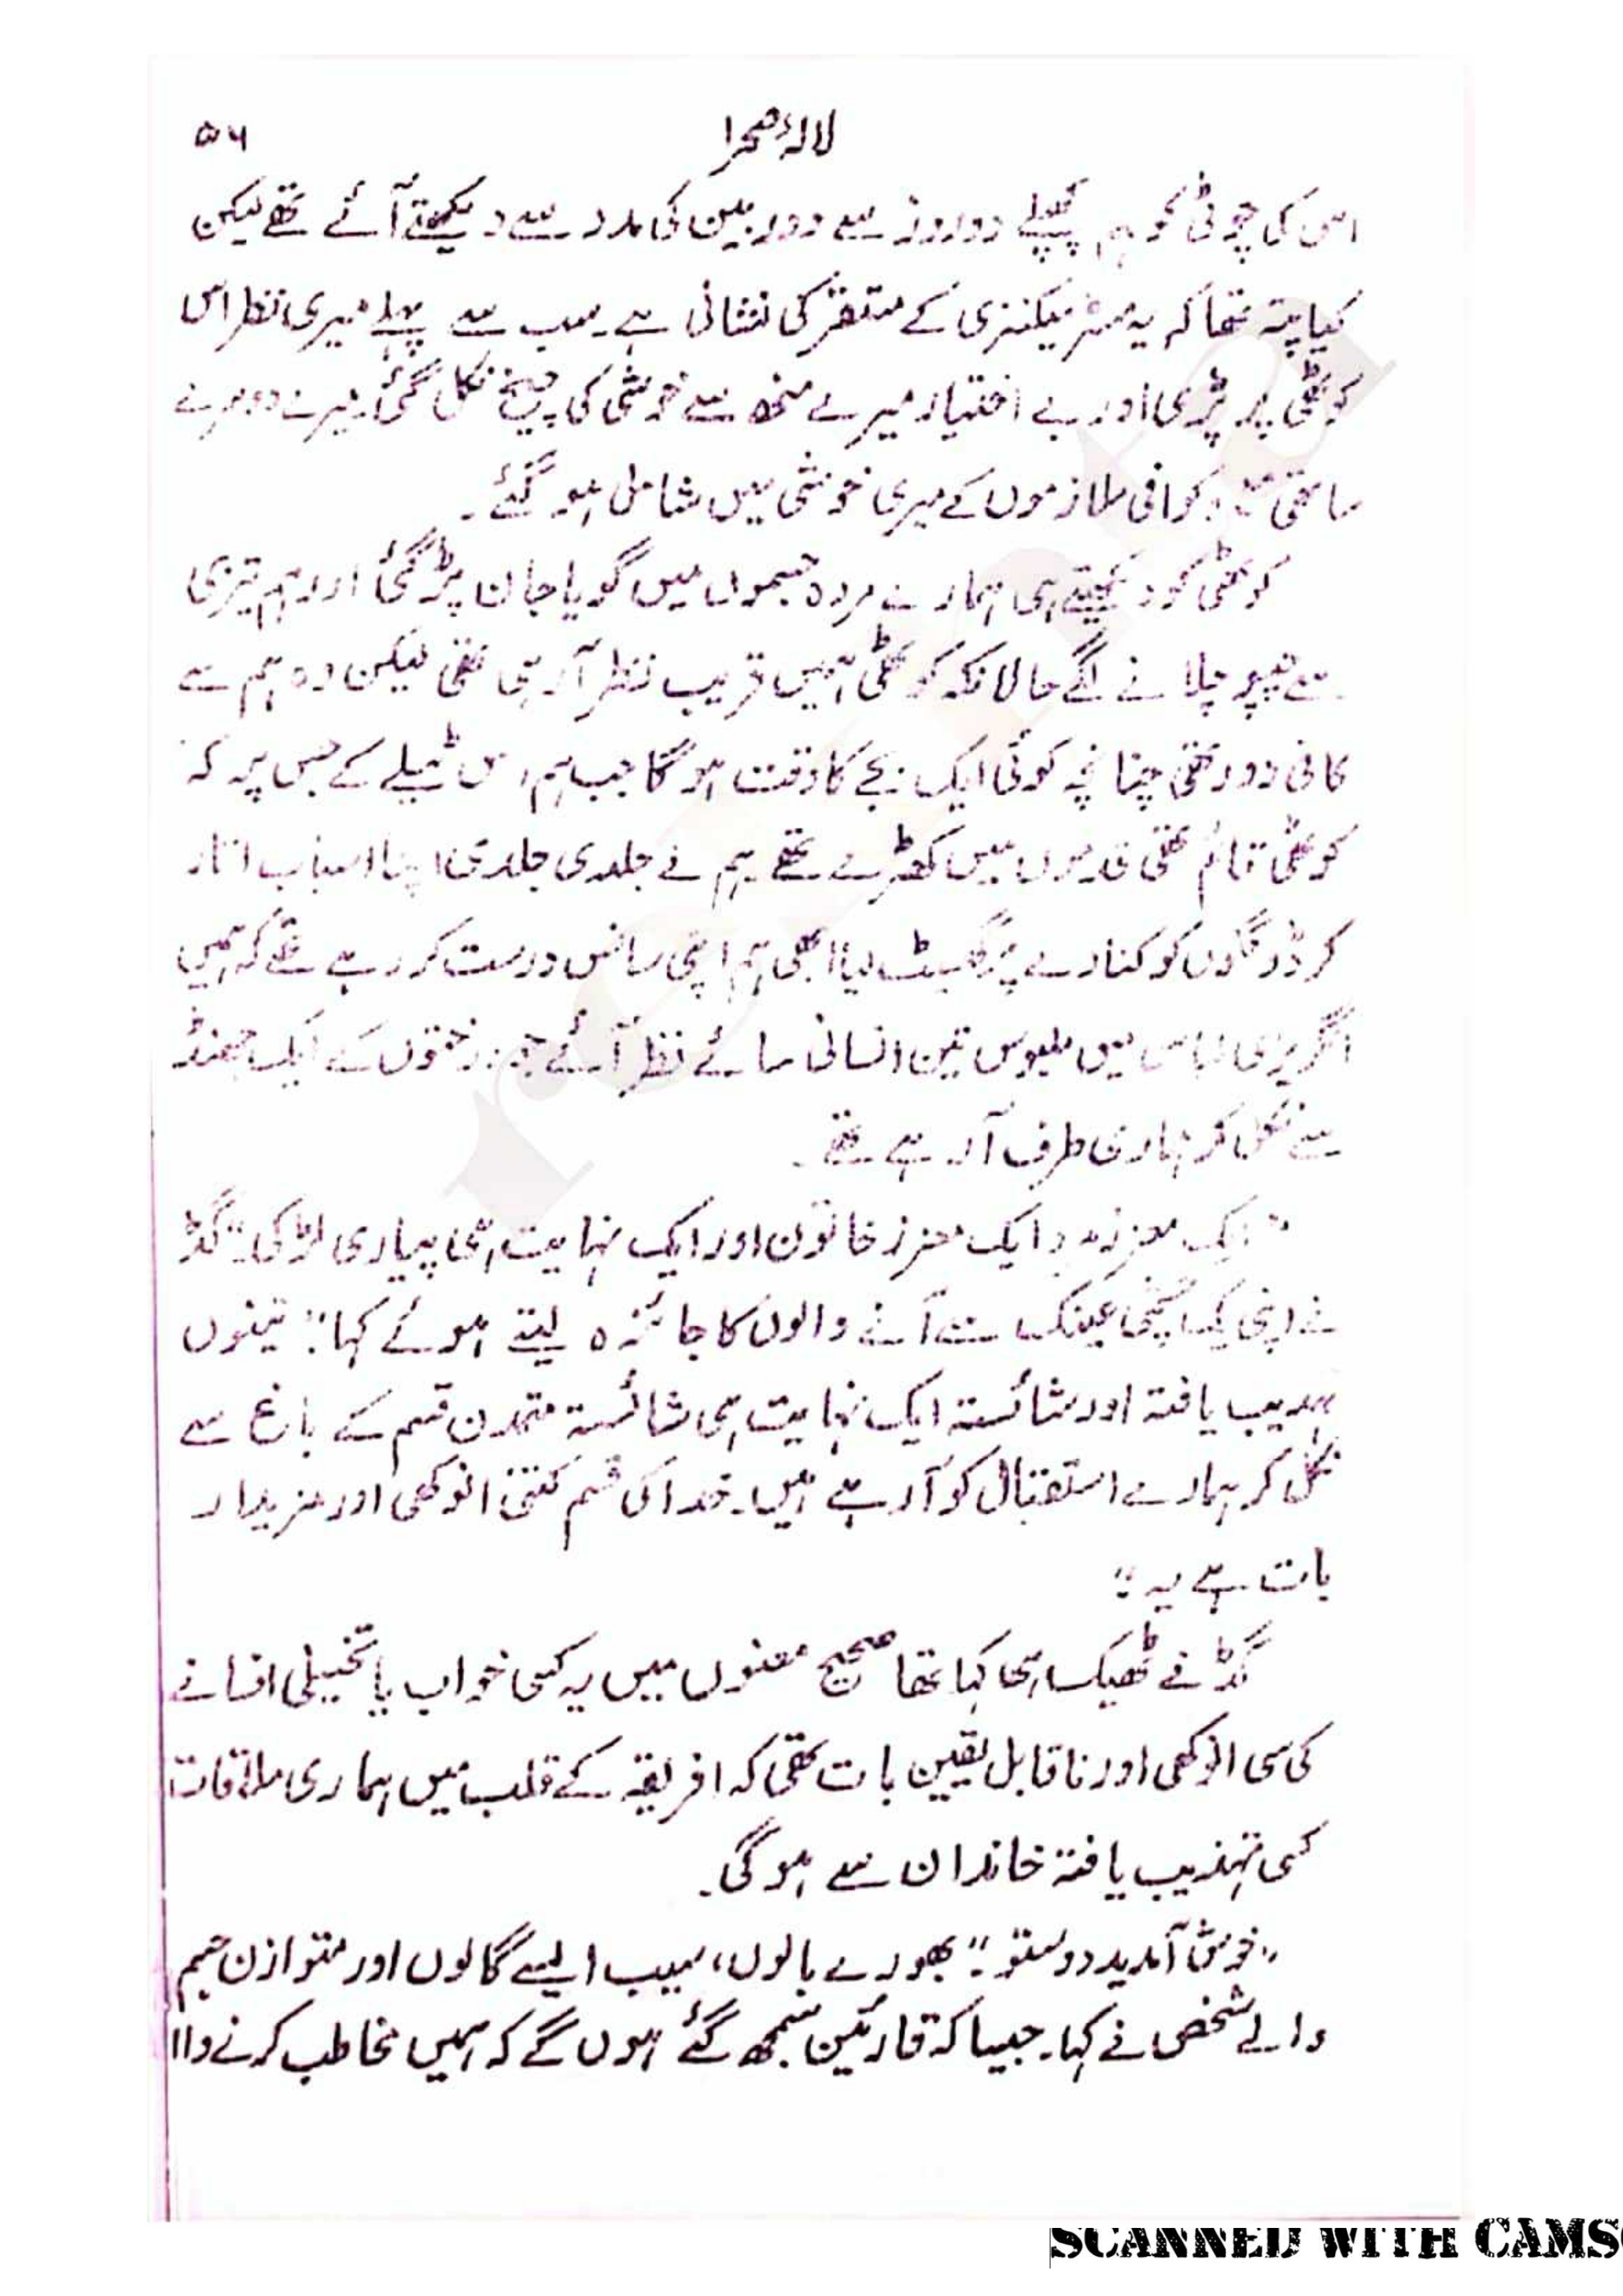 لالۂ صحرا ۵۶
اس کی چوٹی کو ہم پچھلے دو روز سے دوربین کی مدد سے دیکھتے آئے تھے لیکن
کیا پتہ تھا کہ یہ مسٹر میکنزی کے مستقر کی نشانی ہے۔ سب سے پہلے میری نظر اس
کوٹھی پر پڑی اور بے اختیار میرے منھ سے خوشی کی چیخ نکل گئی۔ میرے دوسرے
ساتھی مع وکوافی ملازموں کے میری خوشی میں شامل ہو گئے۔
کوٹھی کو دیکھتے ہی ہمارے مردہ جسموں میں گویا جان پڑ گئی اور ہم تیزی
سے چپو چلانے لگے حالانکہ کوٹھی ہمیں قریب نظر آ رہی تھی لیکن وہ ہم سے
کافی دور تھی چنانچہ کوئی ایک بجے کا وقت ہو گا جب ہم اس ٹیلے کے جس پر کہ
کوٹھی قائم تھی قدموں میں کھڑے تھے ہم نے جلدی جلدی اپنا اسباب اتار
کر ڈونگوں کو کنارے پر گھسیٹ لیا ابھی ہم اپنی سانس درست کر رہے تھے کہ ہمیں
انگریزی لباس میں ملبوس تین انسانی سائے نظر آئے جو درختوں کے ایک جھنڈ
سے نکل کر ہماری طرف آ رہے تھے۔
"ایک معزز مرد ایک معزز خاتون اور ایک نہایت ہی پیاری لڑکی" گڈ
نے اپنی یک چشمی عینک سے آنے والوں کا جائزہ لیتے ہوئے کہا" تینوں
تہذیب یافتہ اور شائستہ ایک نہایت ہی شائستہ متمدن قسم کے باغ سے
نکل کر ہمارے استقبال کو آ رہے ہیں۔ خدا کی قسم کتنی انوکھی اور مزیدار
بات ہے یہ"
گڈ نے ٹھیک ہی کہا تھا صحیح معنوں میں یہ کسی خواب یا تخییلی افسانے
کی سی انوکھی اور ناقابل یقین بات تھی کہ افریقہ کے قلب میں ہماری ملاقات
کسی تہذیب یافتہ خاندان سے ہو گی۔
"خوش آمدید دوستو" بھورے بالوں، سیب ایسے گالوں اور متوازن جسم
والے شخص نے کہا۔ جیسا کہ قارئین سمجھ گئے ہوں گے کہ ہمیں مخاطب کرنے والا
SCANNED WITH CAMS